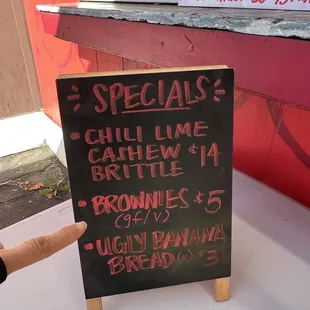 SPECIALS
• CHILI LIME
CASHEW $14
BRITTLE
• BROWNIES $5
(gf/v)
• UGLY BANANA
BREAD (v) $3